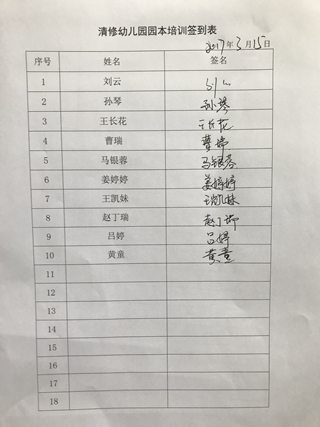 清修幼儿园园本培训签到表
2017年3月15日
序号 姓名 签名
1 刘云
2 孙琴 孙琴
3 王长花 王长花
4 曹瑞 曹瑞
5 马银蓉 马银蓉
6 姜婷婷 姜婷婷
7 王凯妹
8 赵丁瑞 赵丁瑞
9 吕婷 吕婷
10 黄童 黄童
11
12
13
14
15
16
17
18